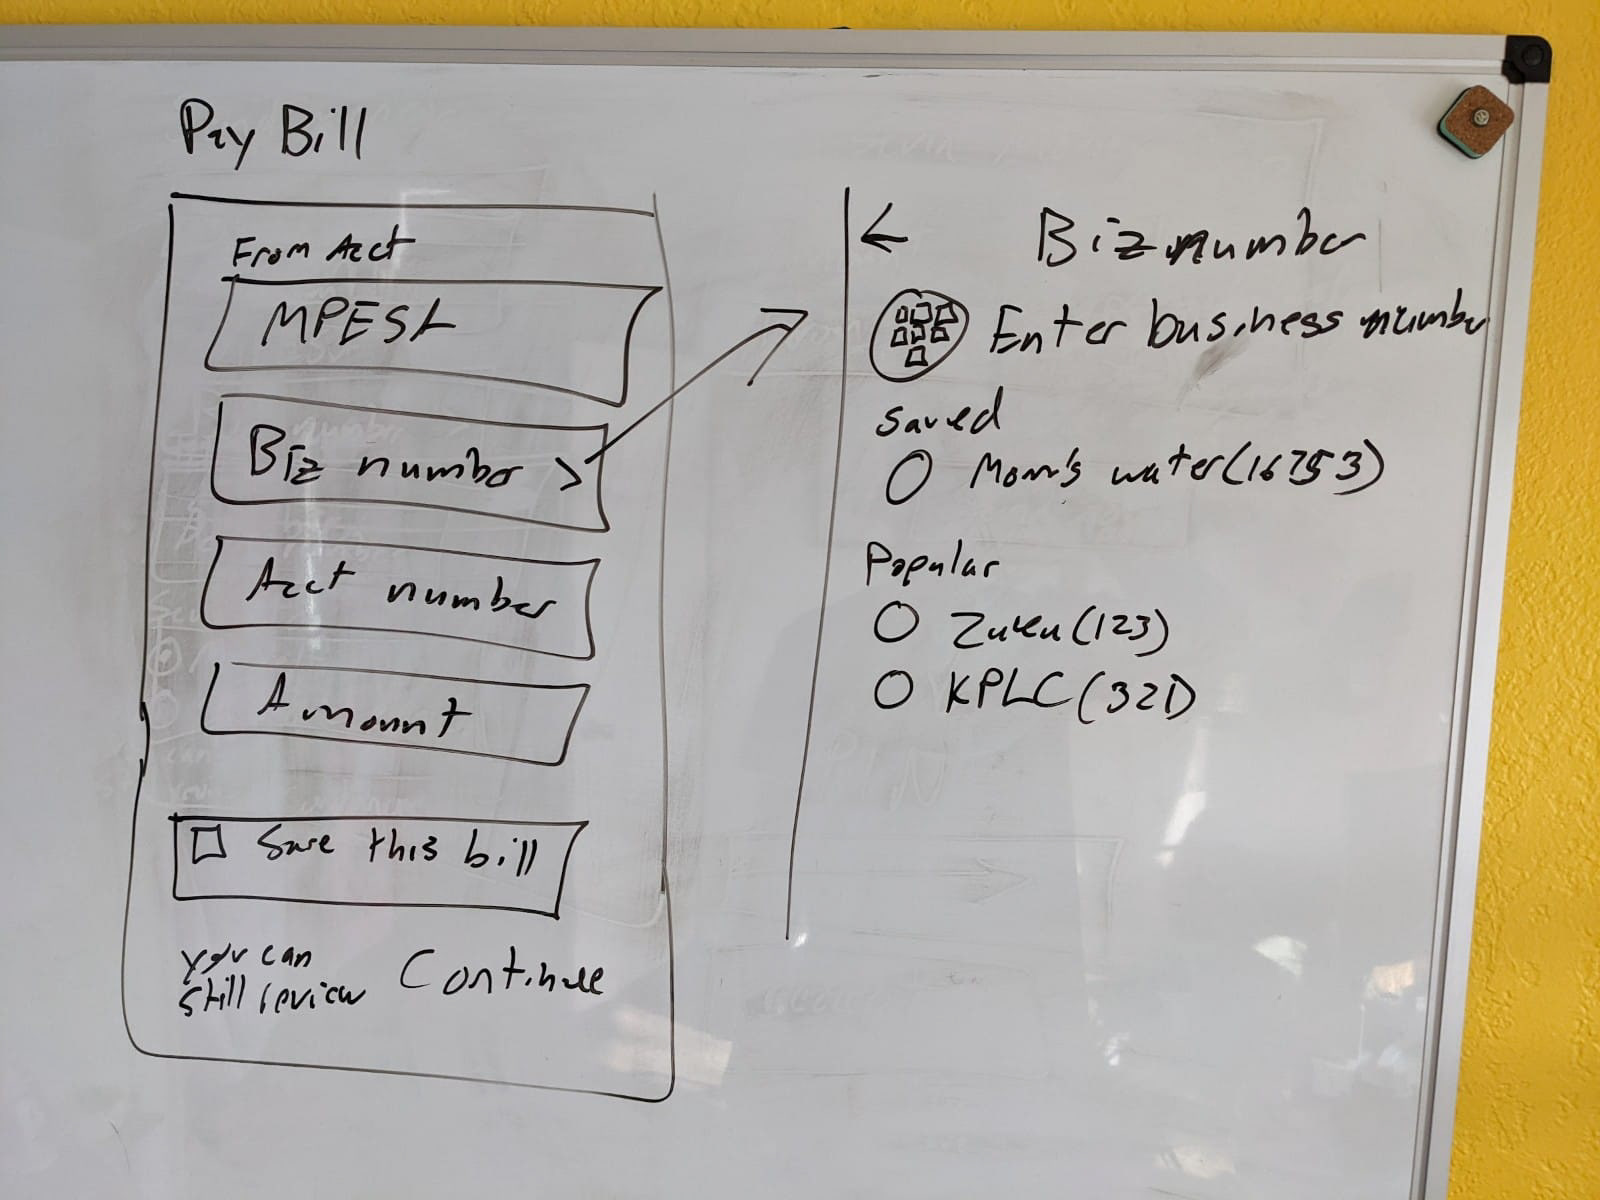 Pay Bill
From Acct
MPESA
Biz number >
Acct number
Amount
Save this bill
you can
still review
Continue
← Biz number
Enter business number
Saved
Mom's water (16753)
Popular
Zuku (123)
KPLC (321)